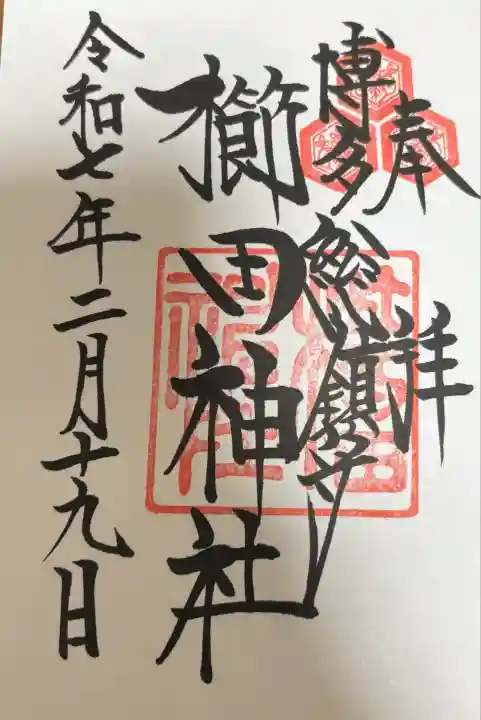 奉拝
博多総鎮守
櫛田神社
令和七年二月十九日